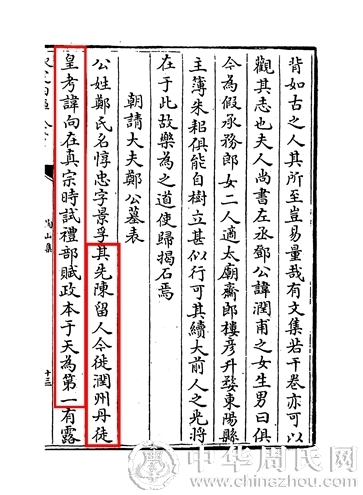 背如古之人其所至豈易量哉有文集若干卷亦可以
觀其志也夫人尚書左丞鄧公諱潤甫之女生男曰俱
今為假承務郎女二人適太廟齋郎樓彦升婺東陽縣
主簿朱耜俱能自樹立甚似行可其續大前人之光將
在于此故樂為之道使歸揭石焉
朝請大夫鄭公墓表
公姓鄭氏名惇忠字景孚其先陳留人今徙潤州丹徒
皇考諱向在真宗時試禮部賦政本于天為第一有露
陶山集
十三
中华周氏网